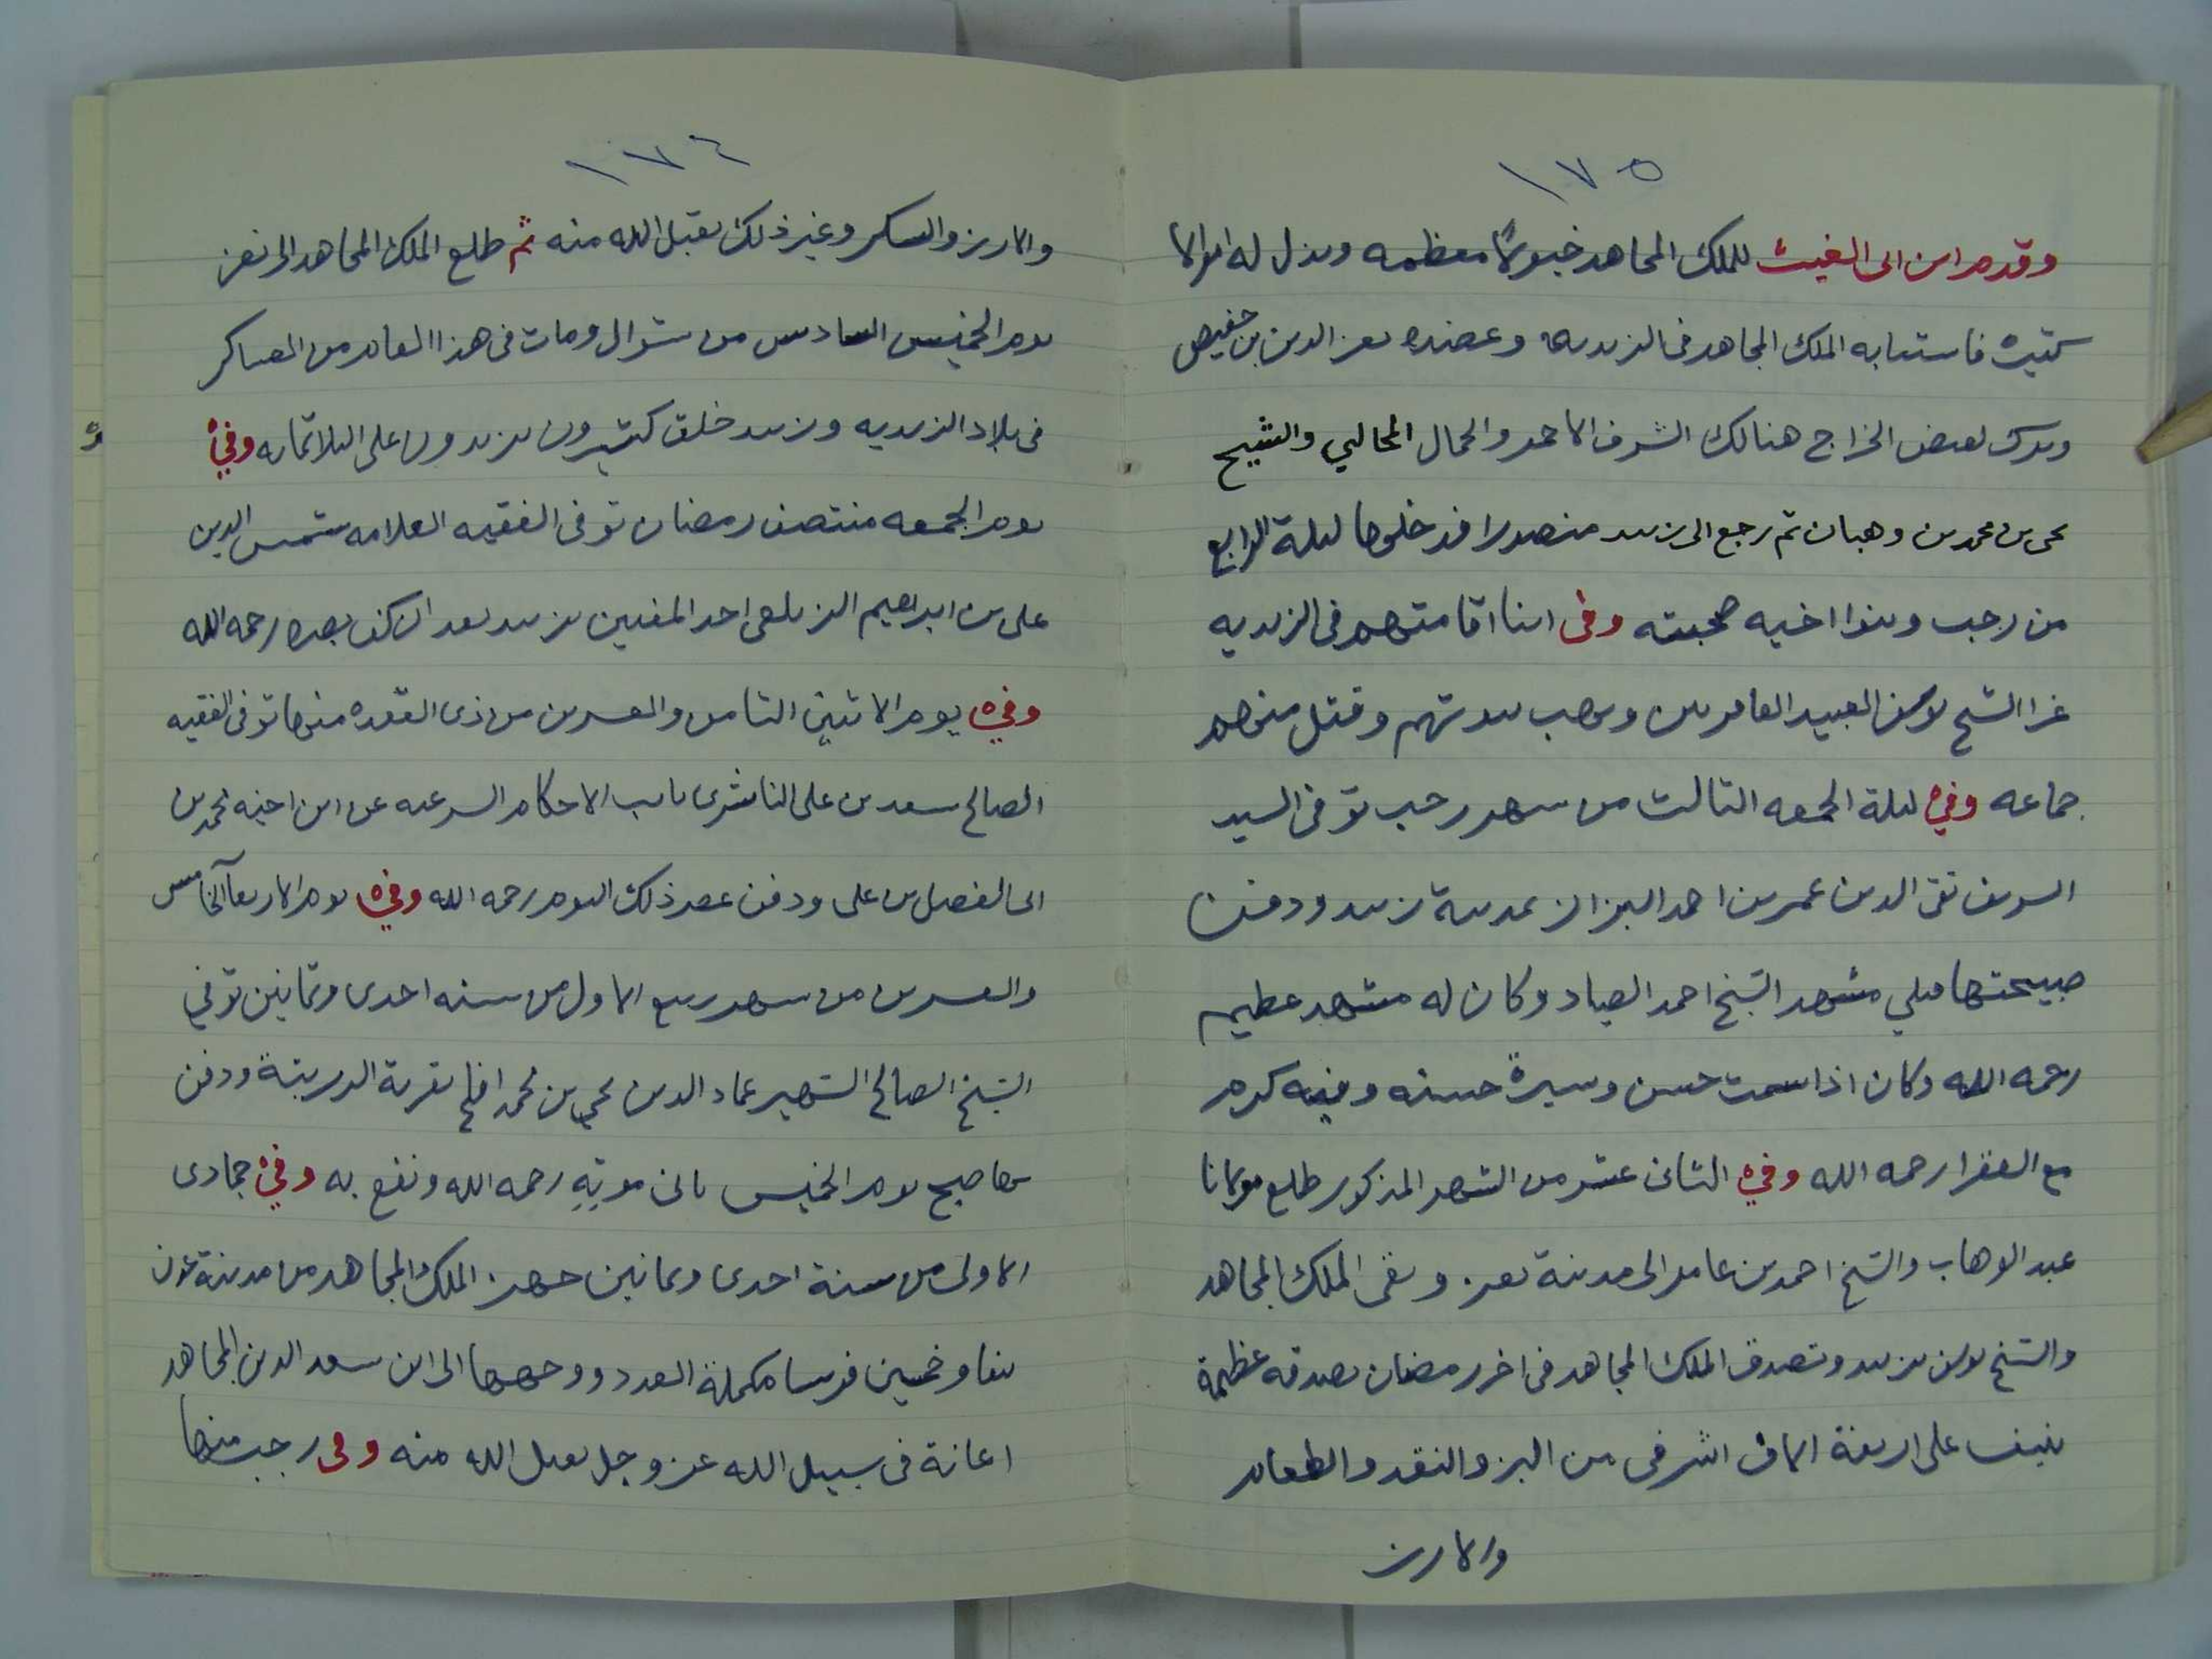 ١٧٥
وقدم ابن ابى الغيث للملك المجاهد خيولًا معظمه وبذل له اموالا
كثيره فاستنابه الملك المجاهد فى الزيديه وعضده بعز الدين بن حفيص
وترك لقبض الخراج هنالك الشرف الاحمر والجمال المحالبي والشيخ
يحى بن محمد بن وهبان ثم رجع الى زبيد منصورا فدخلوها ليلة الرابع
من رجب وبنوا اخيه صحبته وفى اثنا اقامتهم فى الزيديه
غزا الشيخ يوسف العبيد العامريين ونهب بيوتهم وقتل منهم
جماعه وفي ليلة الجمعه الثالث من شهر رجب توفى السيد
الشريف تقى الدين عمر بن احمد البزاز بمدينة زبيد ودفن
صبيحتها قبلي مشهد الشيخ احمد الصياد وكان له مشهد عظيم
رحمه الله وكان اذا سمت حسن وسيرة حسنه وفيه كرم
مع الفقرا رحمه الله وفي الثانى عشر من الشهر المذكور طلع مولانا
عبد الوهاب والشيخ احمد بن عامر الى مدينة تعز وبقى الملك المجاهد
والشيخ يوسف بزبيد وتصدق الملك المجاهد فى اخر رمضان بصدقه عظيمة
ينيف على اربعة الاف اشرفى من البز والنقد والطعام
والارز
١٧٦
والارز والسكر وغير ذلك تقبل الله منه ثم طلع الملك المجاهد الى تعز
يوم الخميس السادس من شوال ومات فى هذا العام من العساكر
فى بلاد الزيديه وزبيد خلق كثيرون يزيدون على الثلاثمائه وفي
يوم الجمعه منتصف رمضان توفى الفقيه العلامه شمس الدين
على بن ابراهيم الزيلعى احد المفتين بزبيد بعد ان كف بصره رحمه الله
وفي يوم الاثنين الثامن والعشرين من ذى القعده منها توفى الفقيه
الصالح سعد بن على الناشرى نايب الاحكام الشرعيه عن ابن اخيه محمد بن
ابى الفضل بن على ودفن عصر ذلك اليوم رحمه الله وفي يوم الاربعآ الخامس
والعشرين من شهر ربيع الاول من سنه احدى وثمانين توفي
الشيخ الصالح الشهير عماد الدين يحي بن محمد افلح بقرية الدريبة ودفن
بها صبح يوم الخميس ثانى موتِهِ رحمه الله ونفع به وفي جمادى
الاولى من سنة احدى وثمانين جهز الملك المجاهد من مدينة عدن
نيفا وخمسين فرسا مكملة العدد ووجهها الى ابن سعد الدين المجاهد
اعانة فى سبيل الله عز وجل تقبل الله منه وفى رجب منها